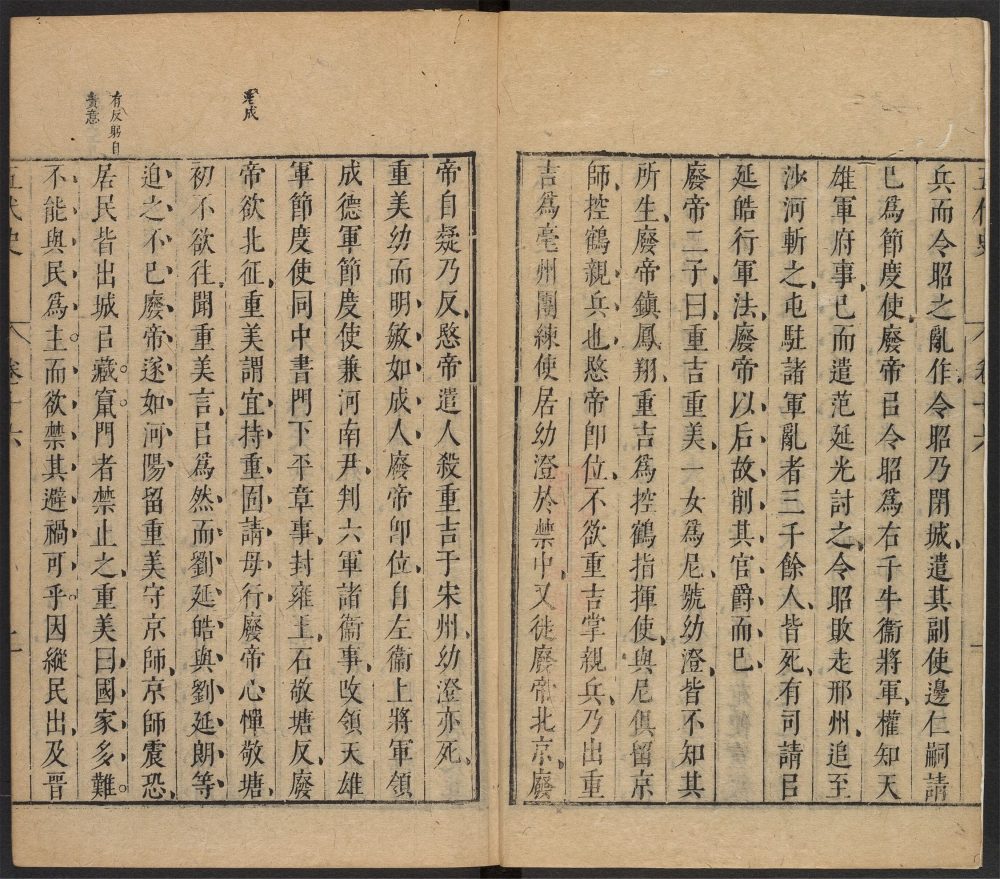 兵而令昭之亂作令昭乃閉城遣其副使邊仁嗣請
巳爲節度使廢帝㠯令昭爲右千牛衞將軍權知天
雄軍府事巳而遣范延光討之令昭敗走邢州追至
沙河斬之屯駐諸軍亂者三千餘人皆死有司請㠯
延皓行軍法廢帝以后故削其官爵而巳
廢帝二子曰重吉重美一女爲尼號幼澄皆不知其
所生廢帝鎮鳳翔重吉爲控鶴指揮使與尼俱留京
師控鶴親兵也愍帝卽位不欲重吉掌親兵乃出重
吉爲亳州團練使居幼澄於禁中又徙廢帝北京廢
帝自疑乃反愍帝遣人殺重吉于宋州幼澄亦死
重美幼而明敏如成人廢帝卽位自左衞上將軍領
成德軍節度使兼河南尹判六軍諸衞事攺領天雄
軍節度使同中書門下平章事封雍王石敬塘反廢
帝欲北征重美謂宜持重固請毋行廢帝心憚敬塘
初不欲往聞重美言㠯爲然而劉延皓與劉延朗等
迫之不巳廢帝遂如河陽留重美守京師京師震恐
居民皆出城㠯藏竄門者禁止之重美曰國家多難
不能與民爲主而欲禁其避禍可乎因縱民出及晉
五代史 卷十六
老成
有反躬自
責意